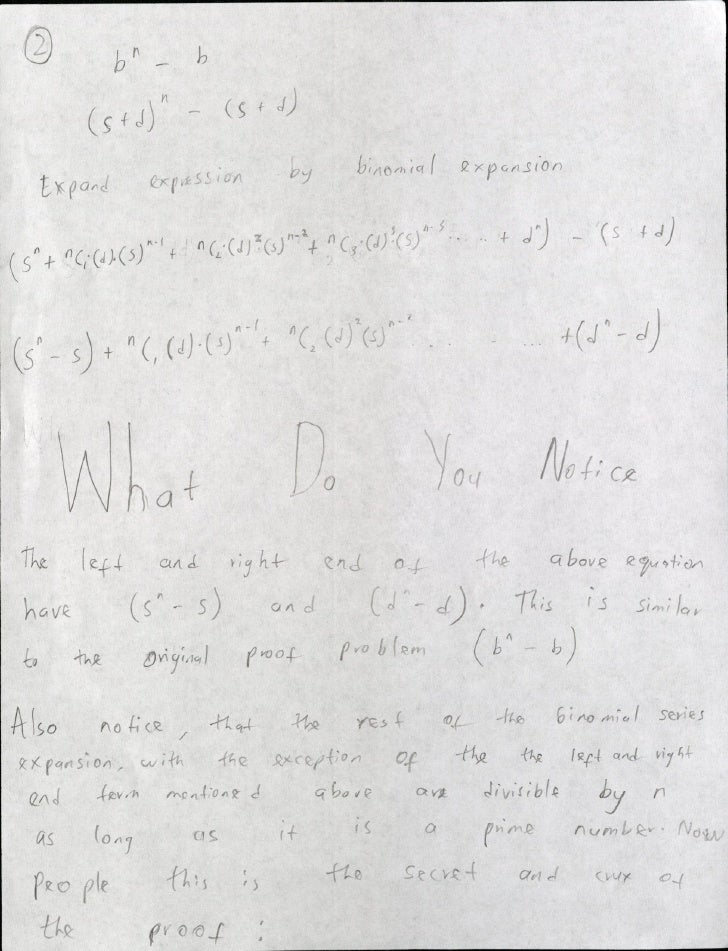 ②
bⁿ - b
(s+d)ⁿ - (s+d)
Expand expression by binomial expansion
(sⁿ + ⁿC₁·(d)·(s)ⁿ⁻¹ + ⁿC₂·(d)²·(s)ⁿ⁻² + ⁿC₃·(d)³·(s)ⁿ⁻³ ..... + dⁿ) - (s+d)
(sⁿ - s) + ⁿC₁(d)·(s)ⁿ⁻¹ + ⁿC₂(d)²(s)ⁿ⁻² ... - ... +(dⁿ - d)
What Do You Notice
The left and right end of the above equation
have (sⁿ - s) and (dⁿ - d). This is similar
to the original proof problem (bⁿ - b)
Also notice, that the rest of the binomial series
expansion, with the exception of the the left and right
end term mentioned above are divisible by n
as long as it is a prime number. Now
people this is the secret and crux of
the proof: